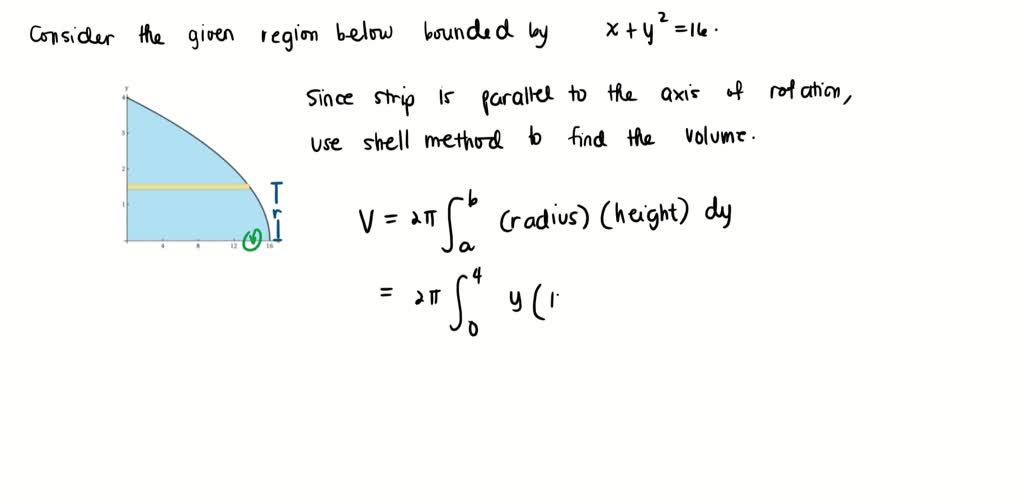 Consider the given region below bounded by x + y² = 16.
Since strip is parallel to the axis of rotation,
use shell method to find the volume.
y
4
3
2
1
r
4 8 12 16
V = 2π ∫_a^b (radius) (height) dy
= 2π ∫_0^4 y (1